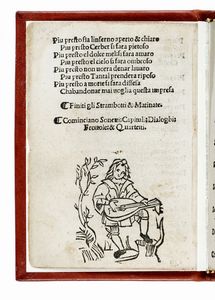 Piu presto sia linferno aperto & chiaro
Piu presto Cerber si fara pietoso
Piu presto el dolce mel si fara amaro
Piu presto el cielo si fara ombroso
Piu presto non uorra denar lauaro
Piu presto Tantal prendera riposo
Piu presto a morte si fara diffesa
Chabandonar mai uoglia questa impresa
¶ Finiti gli Strambotti & Matinate.
¶ Cominciano Sonetti, Capitoli, Dialoghi
& Quarteti.